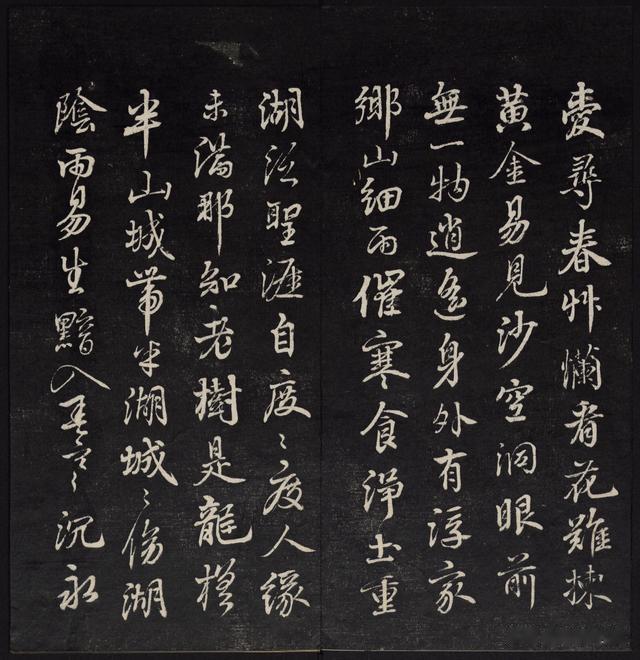 愛尋春艸懶看花難揀
黄金易見沙空洞眼前
無一物逍遥身外有浮家
鄉山細雨催寒食淨土重
湖聖涯自度〻度人緣
未滿那知老樹是龍槎
半山城帶半湖城〻傍湖
陰雨易生黯入沉永